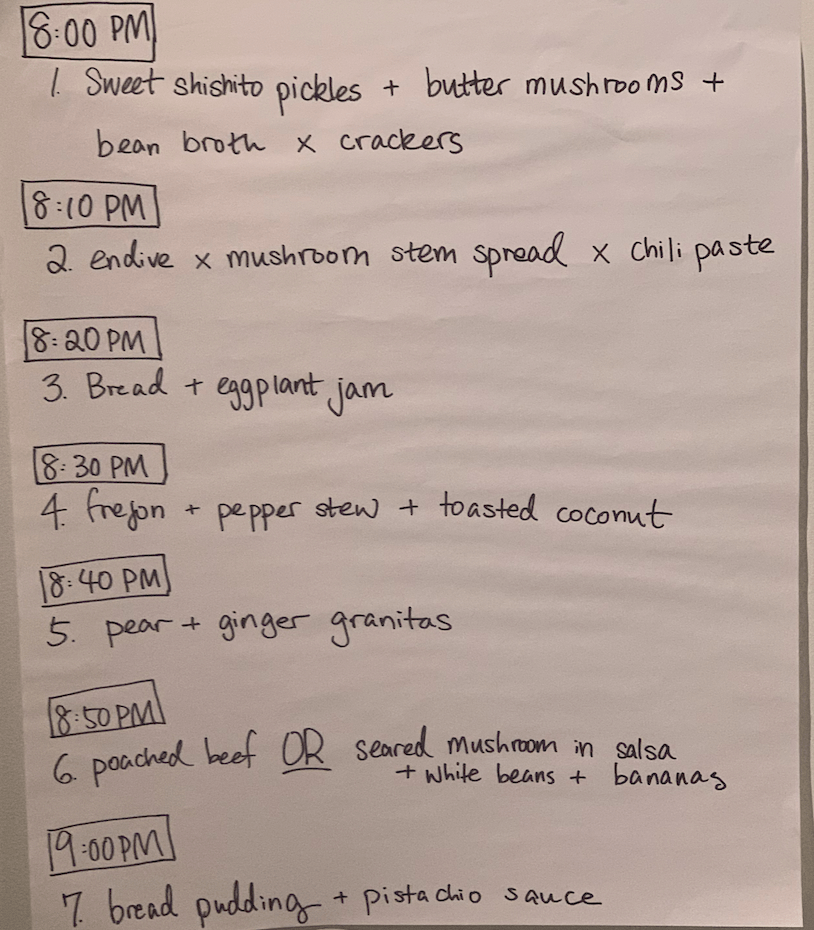 8:00 PM
1. Sweet shishito pickles + butter mushrooms +
bean broth x crackers
8:10 PM
2. endive x mushroom stem spread x chili paste
8:20 PM
3. Bread + eggplant jam
8:30 PM
4. frejon + pepper stew + toasted coconut
8:40 PM
5. pear + ginger granitas
8:50 PM
6. poached beef OR seared mushroom in salsa
+ white beans + bananas
9:00 PM
7. bread pudding + pistachio sauce